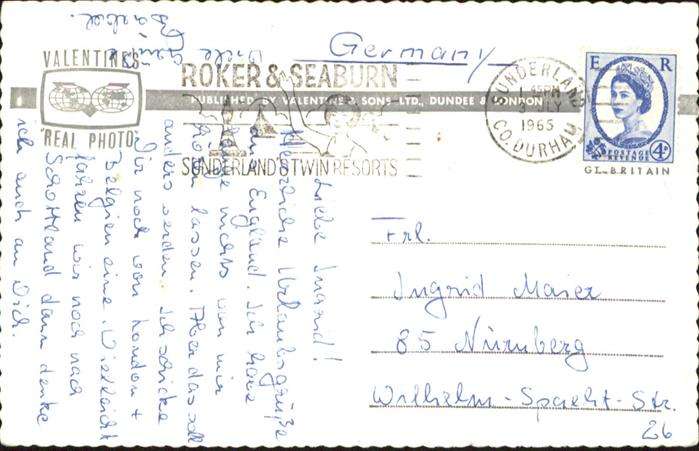 Germany
VALENTINE'S
"REAL PHOTO"
ROKER & SEABURN
SUNDERLAND'S TWIN RESORTS
PUBLISHED BY VALENTINE & SONS LTD., DUNDEE & LONDON
SUNDERLAND
1 45PM
LY
1965
CO. DURHAM
E R
POSTAGE
REVENUE
4D
GT. BRITAIN
Frl.
Ingrid Maier
85 Nürnberg
Wilhelm-Spaeht-Str.
26
Liebe Ingrid!
Herzliche Urlaubsgrüße
aus England. Ich habe
nichts von mir
hören lassen. Aber das soll
anders werden. Ich schicke
Dir noch von London +
Belgien eine. Vielleicht
fahren wir noch nach
Schottland dann denke
ich auch an Dich.
Viele
Grüße